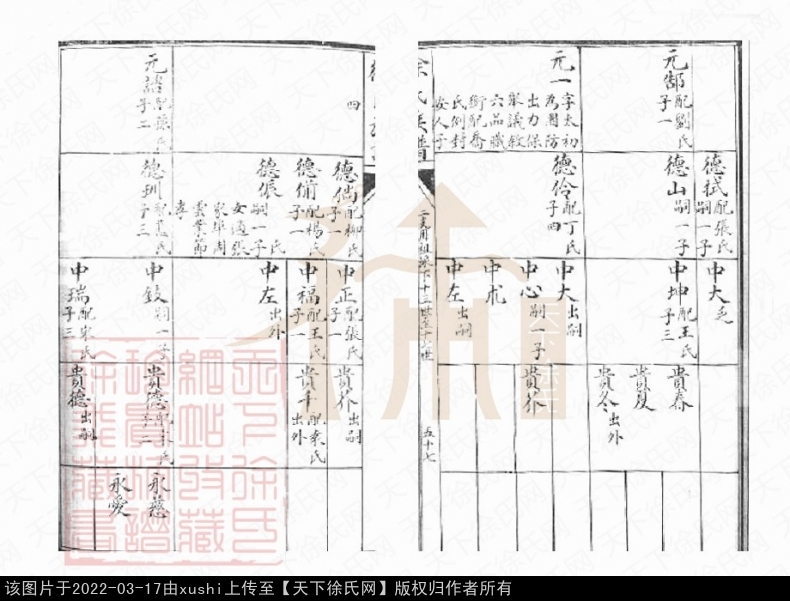 元鄒配劉氏
子一
元一字太初
為團防
出力保
舉議敘
六品職
銜配喬
氏例封
女人子
四
德轼配張氏
嗣一子
德山嗣一子
德伶配丁氏
子四
中大乏
中坤配王氏
子三
中大出嗣
中心嗣一子
中朮
中左出嗣
貴春
貴夏
貴冬出外
貴介
徐氏族譜
五十七
元諧配張氏
子二
德倘配柳氏
子一
德備配楊氏
子一
德倀嗣一子
女適張
德玔配孟氏
子三
中正配張氏
子一
中福配王氏
子一
中左出外
中鈘嗣一子
中瑞配宋氏
子三
貴介出嗣
貴千配秦氏
出外
貴德配李氏
子二
貴德出嗣
永慈
永愛
天下徐氏网
该图片于2022-03-17由xushi上传至【天下徐氏网】版权归作者所有